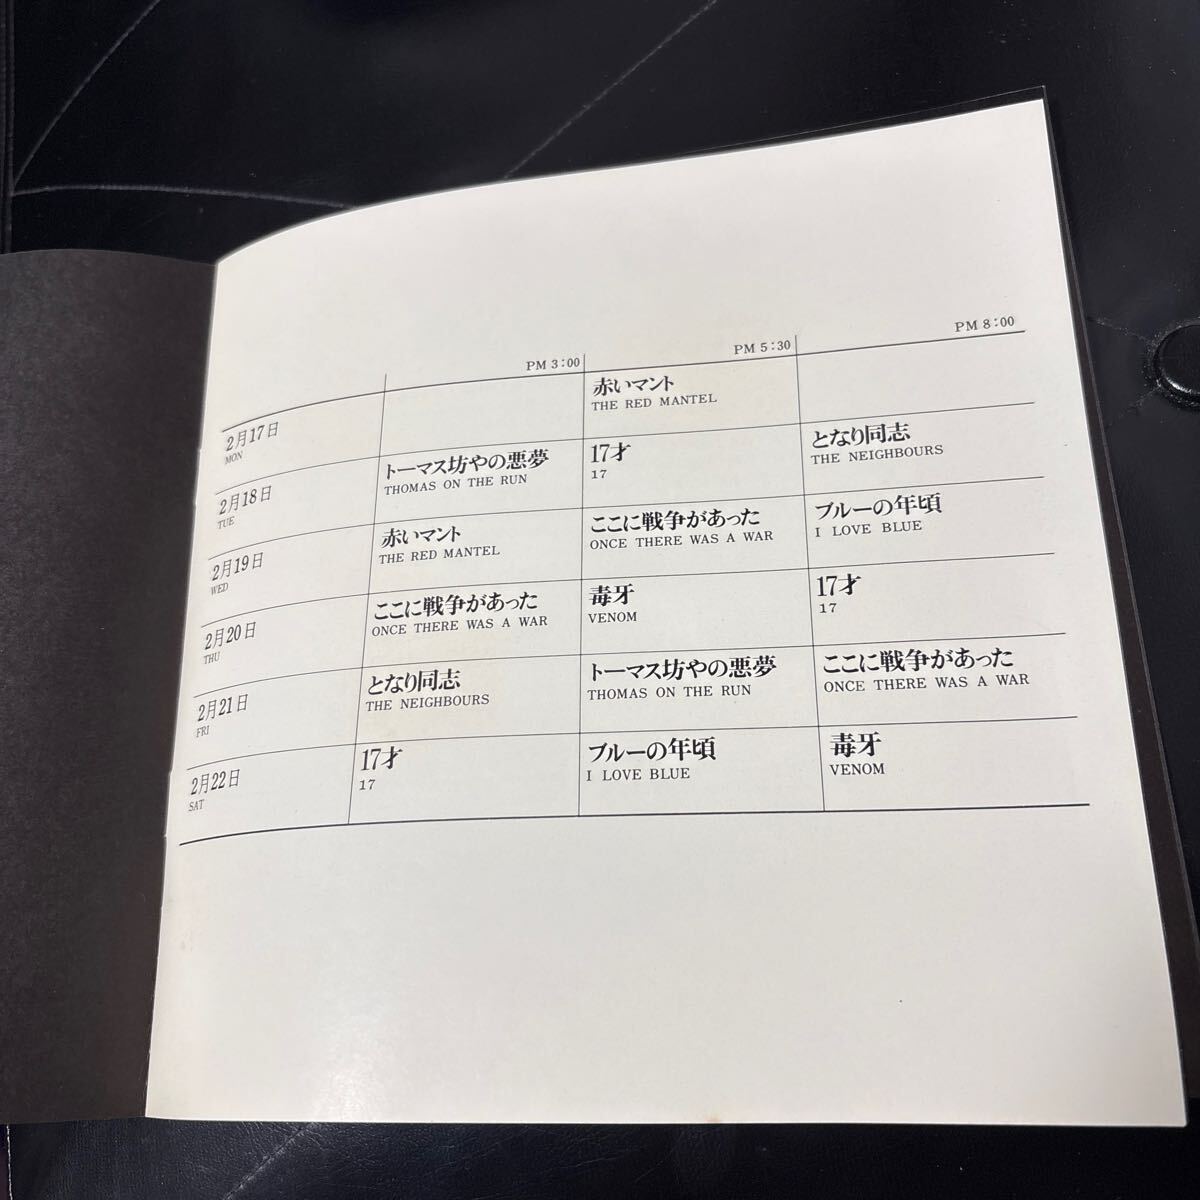 PM 3:00
PM 5:30
PM 8:00
2月17日
MON
赤いマント
THE RED MANTEL
2月18日
TUE
トーマス坊やの悪夢
THOMAS ON THE RUN
17才
17
となり同志
THE NEIGHBOURS
2月19日
WED
赤いマント
THE RED MANTEL
ここに戦争があった
ONCE THERE WAS A WAR
ブルーの年頃
I LOVE BLUE
2月20日
THU
ここに戦争があった
ONCE THERE WAS A WAR
毒牙
VENOM
17才
17
2月21日
FRI
となり同志
THE NEIGHBOURS
トーマス坊やの悪夢
THOMAS ON THE RUN
ここに戦争があった
ONCE THERE WAS A WAR
2月22日
SAT
17才
17
ブルーの年頃
I LOVE BLUE
毒牙
VENOM